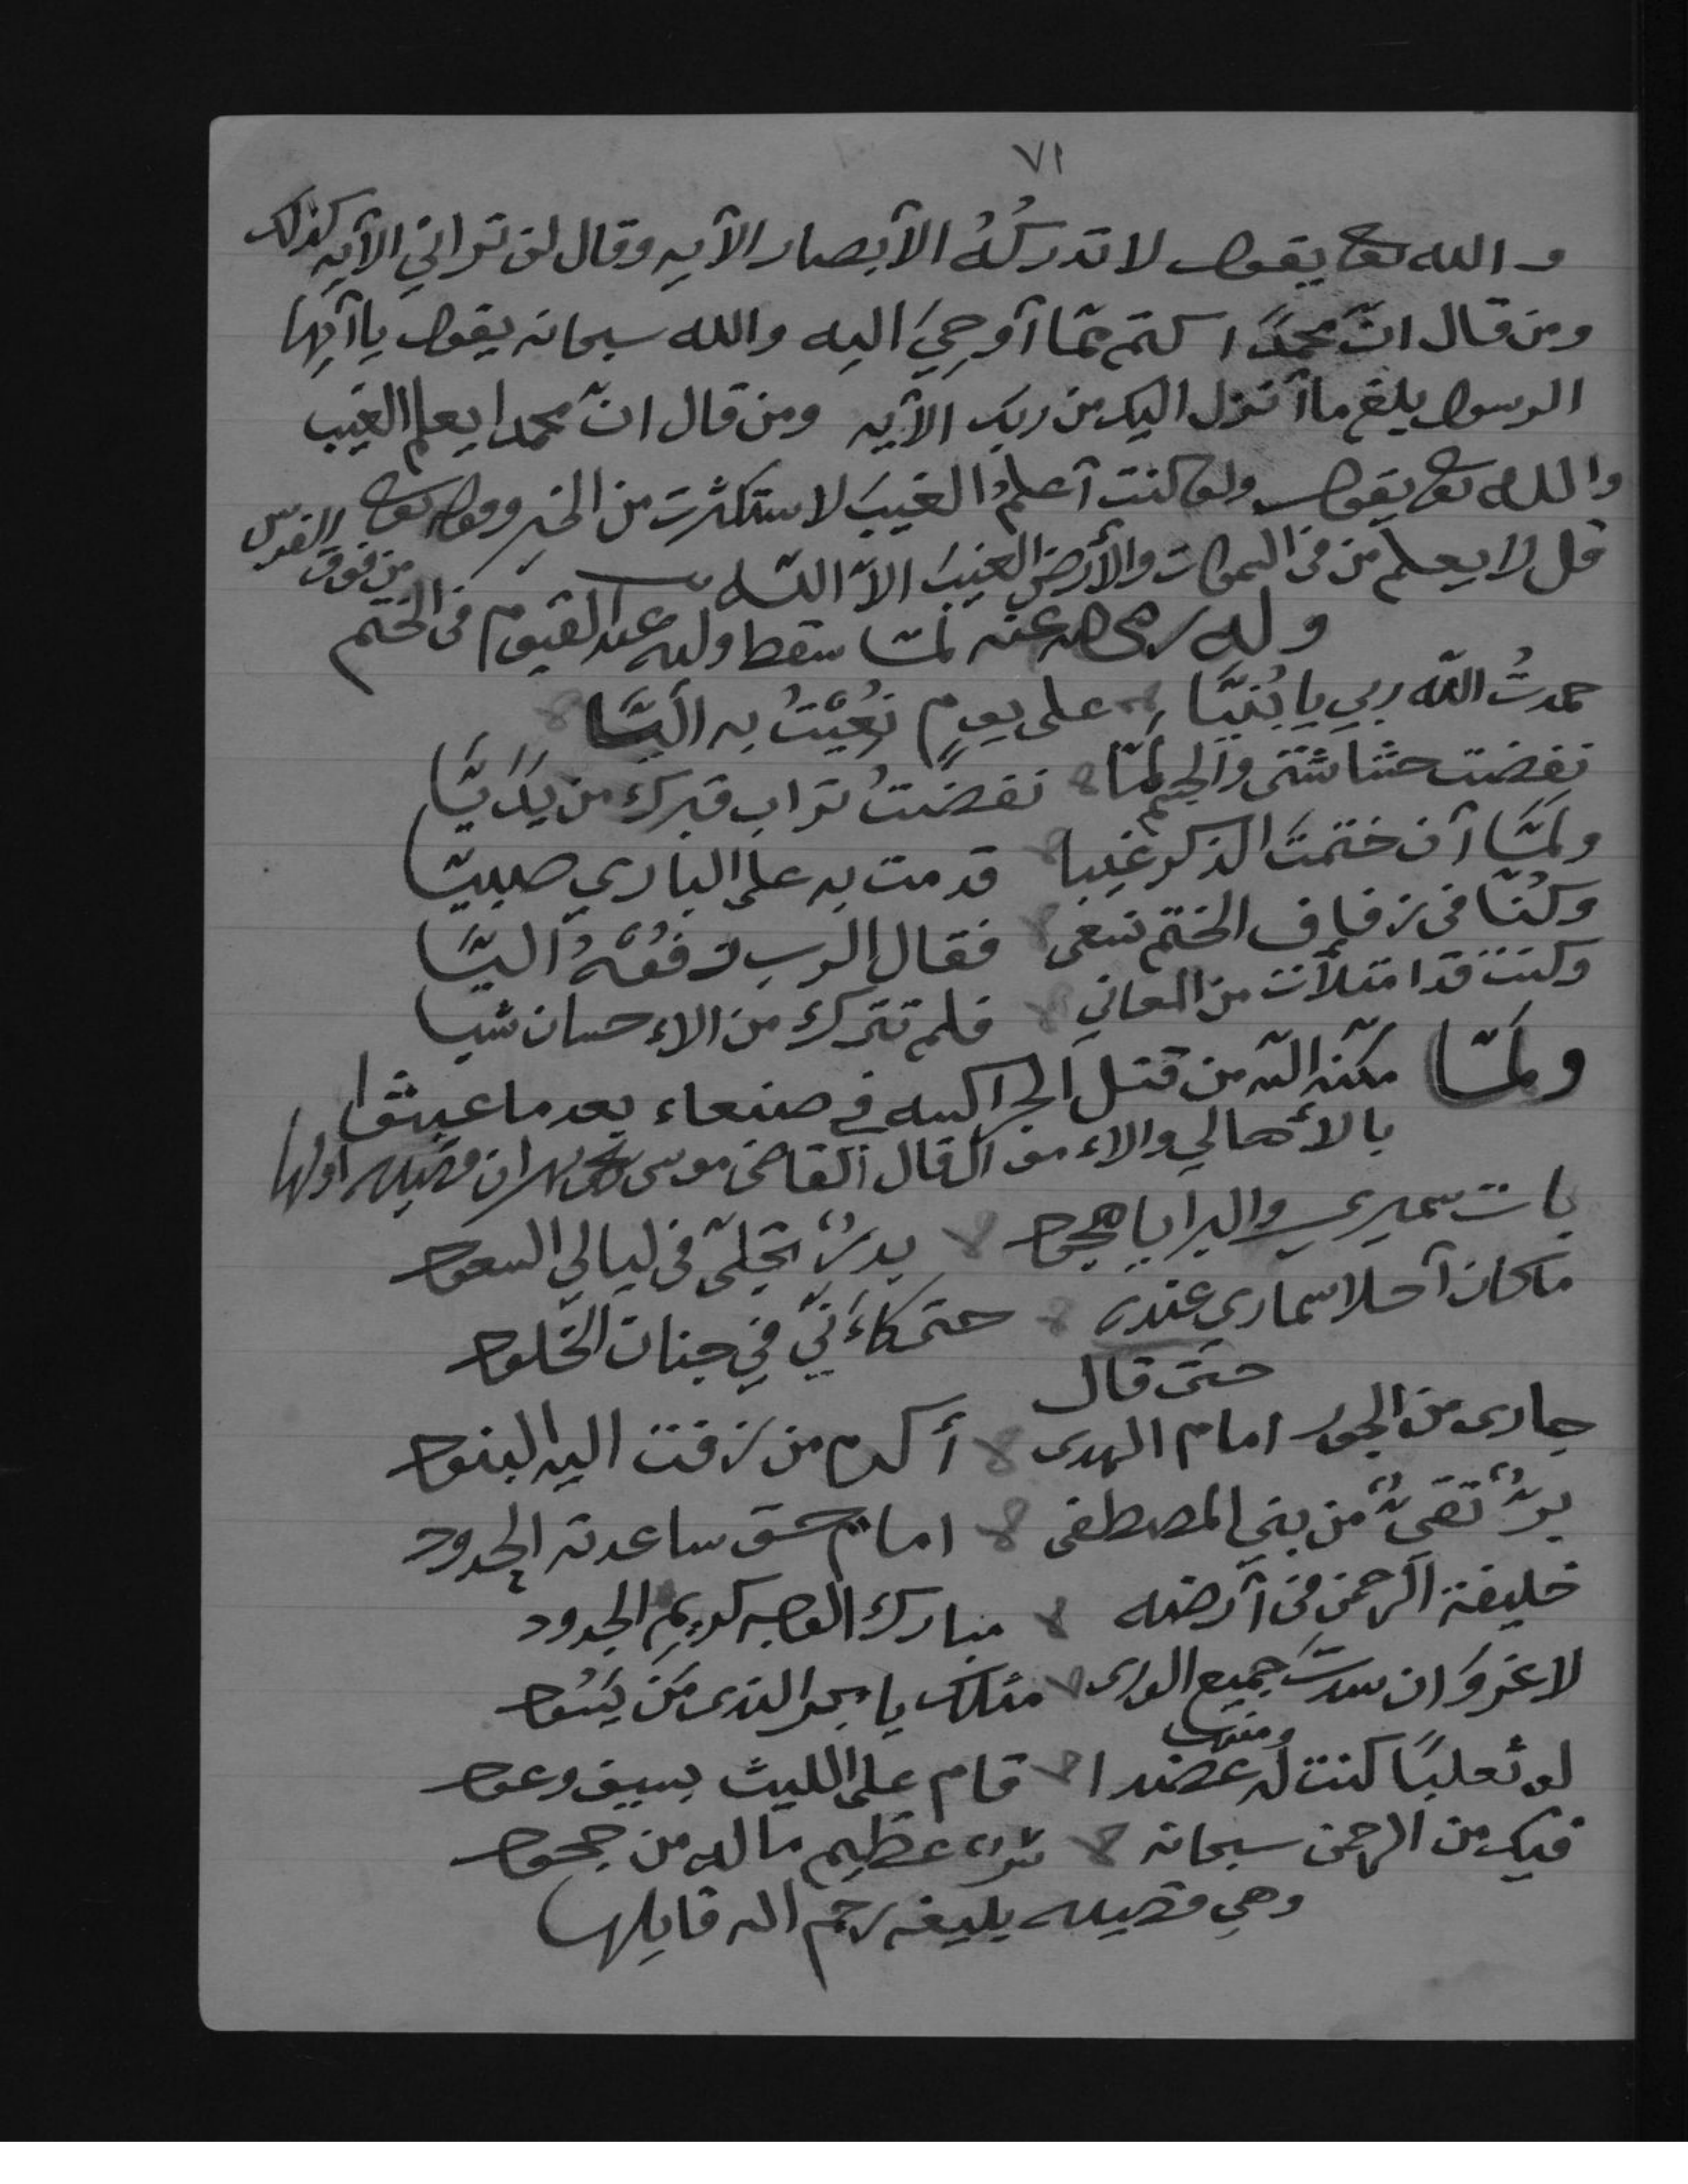 ٧١
والله تع يقول لا تدركُهُ الأبصار الآيه وقال لن تراني الآيه كذلك
ومن قال انّ محمدًا كتم ممّا أوحيَ اليه والله سبحانه يقول يا أيها
الرسول بلغ ما أنزل اليك من ربك الآيه ومن قال انّ محمدا يعلم الغيب
والله تع يقول ولو كنت أعلمُ الغيبَ لاستكثرت من الخير وقوله تع
قل لا يعلم من في السموات والأرض الغيبَ الاّ اللّه
وله رضي الله عنه لمّا سقط ولده عبد القيوم من فوق الفرس في الختم
حمدتُ اللّه ربي يا بُنيّا على يومٍ نُعيْتُ به اليّا
نفضت حشاشتى والجسم لمّا نفضتُ تراب قبرك من يَدَيّا
ولمّا أن ختمتَ الذكر غيبا قدمت به على الباري صبيّا
وكنّا في زفاف الختم نبغى فقال الرب زفوُّهُ اليّا
وكنت قد امتلأت من المعاني فلم تترك من الاءحسان شيا
ولمّا مكّنه اللّه من قتل الجراكسه في صنعاء بعد ما عبثوا
بالأهالي والاءموال قال القاضى موسى بهران قصيده اولها
بات سميري والبرايا هجود بدرٌ تجلّى في ليالي السعود
ما كان أحلا سماري عنده حتى كاءنّي في جنات الخلود
حتى قال
جارى من الجور امام الهدى أكرم من زفت اليه البنود
برٌّ تقىٌّ من بني المصطفى امام حق ساعدته الجدود
خليفة الرحمن في أرضه مبارك الوجه كريم الجدود
لا غروَ ان سدتَ جميع الورى مثلك يا بحر الندى مَن يَسُود
ومنها
لو ثعلبًا كنت له عضدا قام على الليث بسيف وعود
فيك من الرحمن سبحانه سرٌ عظيم ماله من جحود
وهي قصيده بليغه رحم الله قايلها